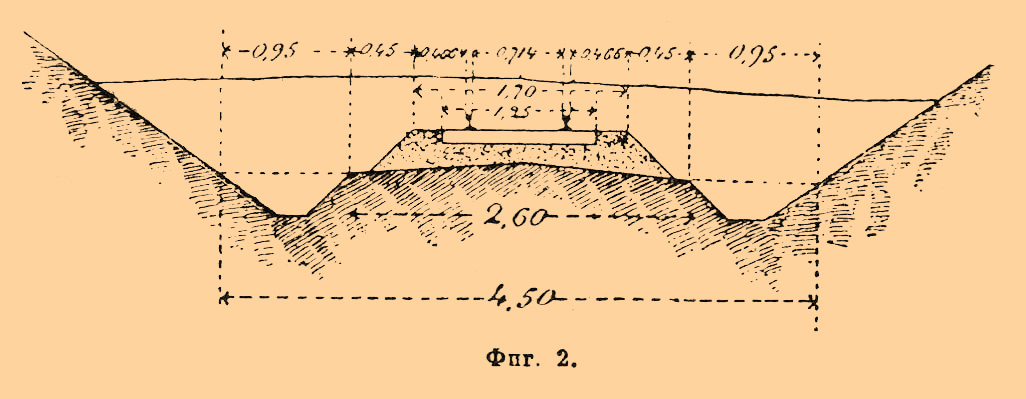 0,95 0,45 0,466 0,714 0,466 0,45 0,95
1,70
1,25
2,60
4.50
Фиг. 2.